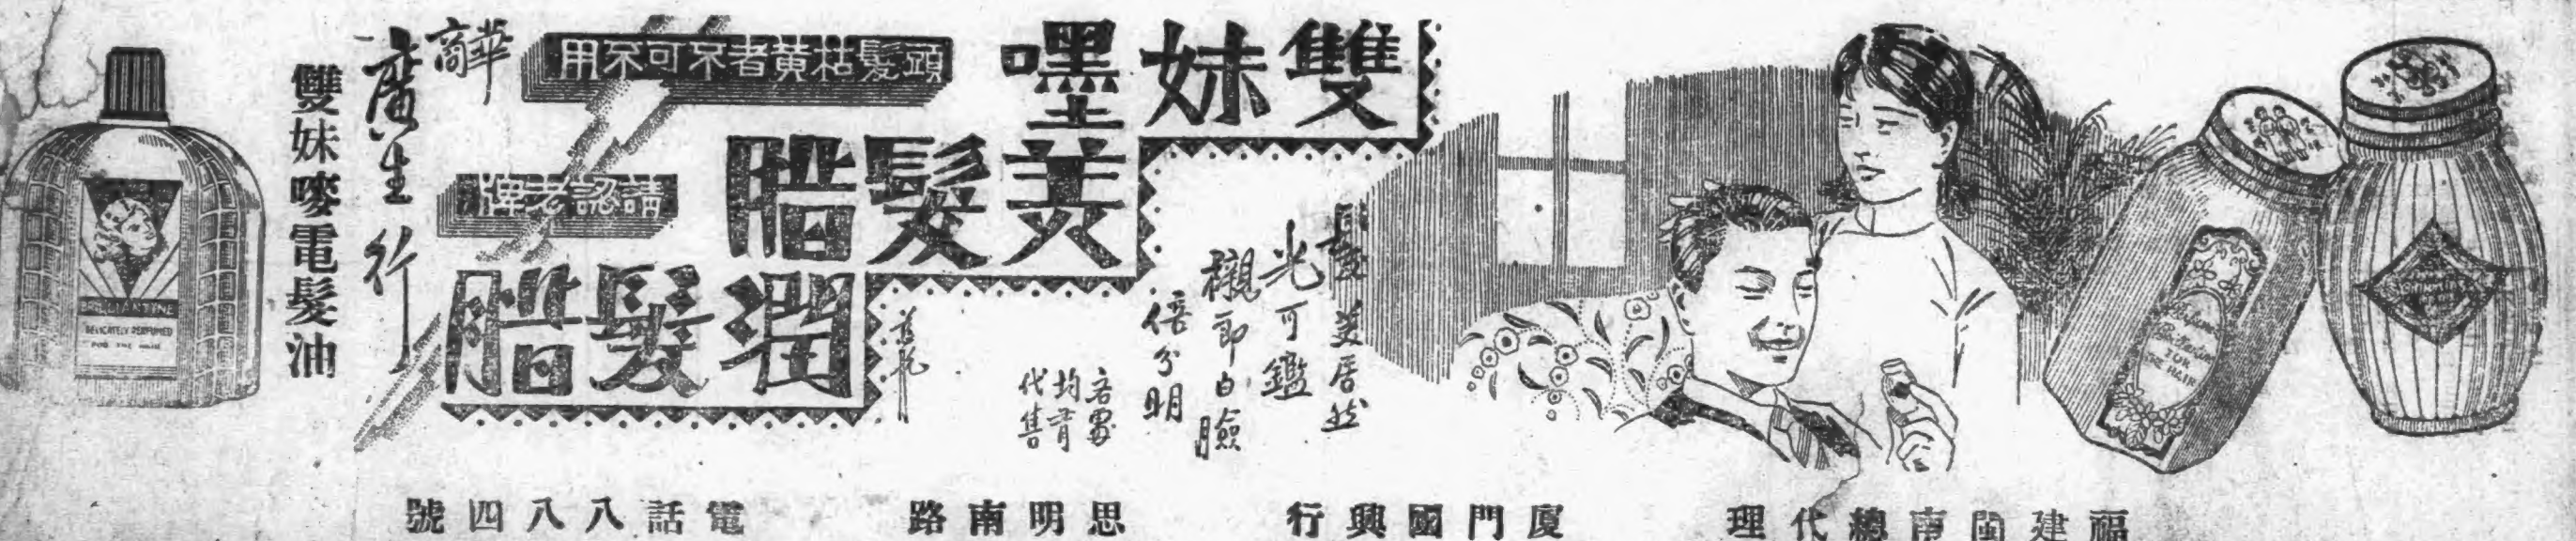 雙妹嚜
美髮脂
潤髮脂
頭髮枯黃者不可不用
請認老牌
髮美居然
光可鑑
襯郎白臉
倍分明
各處
均有
代售
華商
廣生行
雙妹嚜電髮油
BRILLIANTINE
DELICATELY PERFUMED
FOR THE HAIR
FOR
THE HAIR
福建閩南總代理
廈門國興行
思明南路
電話八八四號